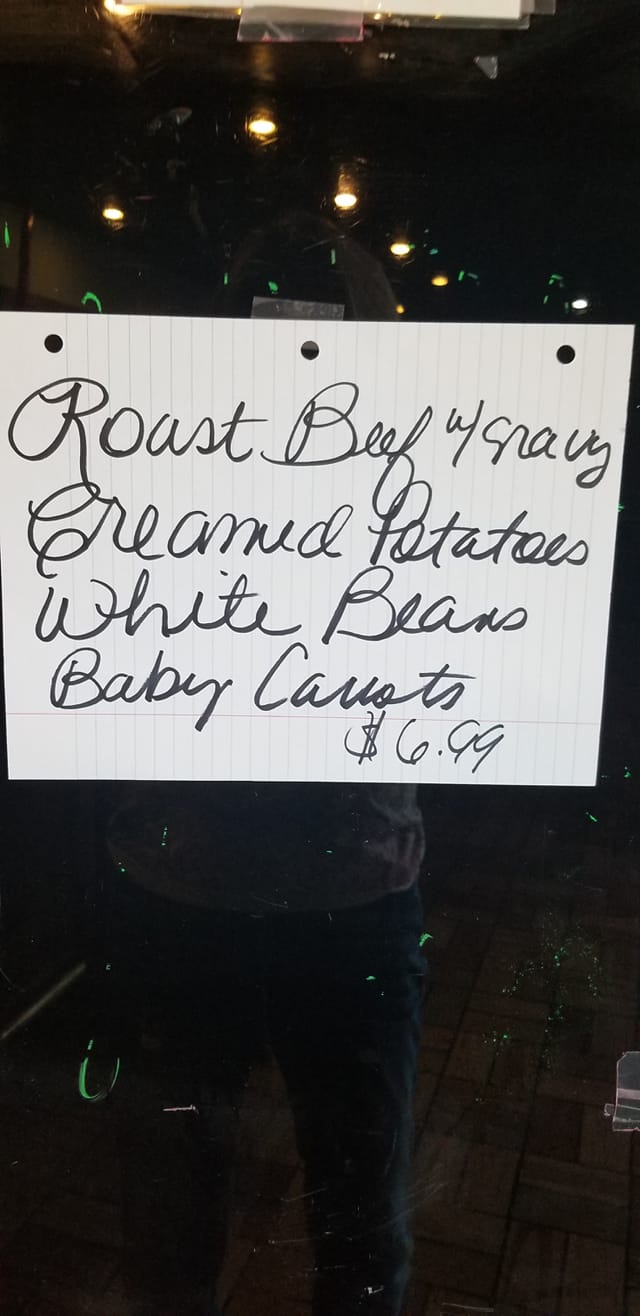 Roast Beef w/ gravy
Creamed Potatoes
White Beans
Baby Carrots
$6.99